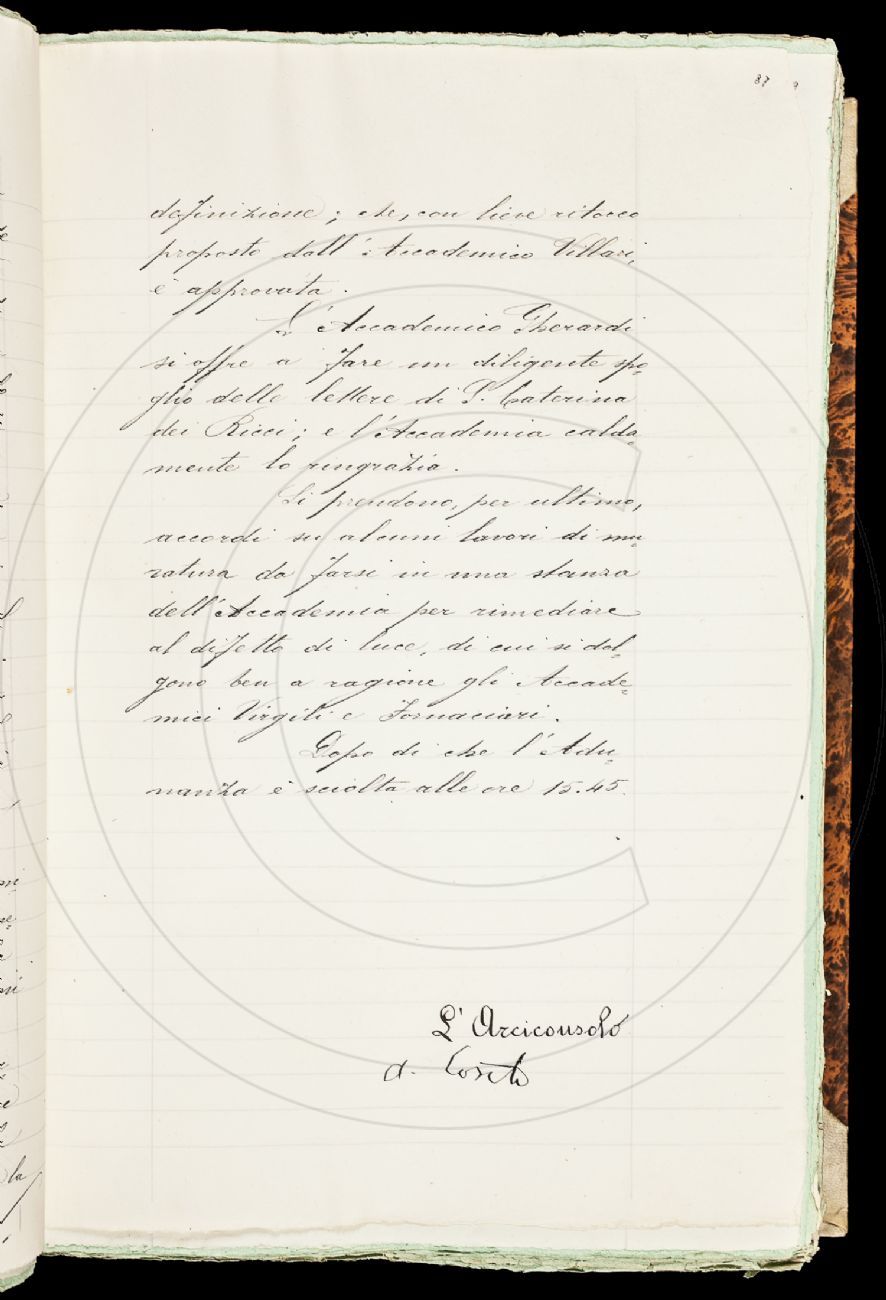 87
definizione; che, con lieve ritocco
proposto dall'Accademico Villari,
è approvata.
L'Accademico Gherardi
si offre a fare un diligente spo=
glio delle lettere di S. Caterina
dei Ricci; e l'Accademia calda=
mente lo ringrazia.
Si prendono, per ultimo,
accordi su alcuni lavori di mu=
ratura da farsi in una stanza
dell'Accademia per rimediare
al difetto di luce, di cui si dol=
gono ben a ragione gli Accade=
mici Virgili e Fornaciari.
Dopo di che l'Adu=
nanza è sciolta alle ore 15.45.
L'Arciconsolo
A. Conti